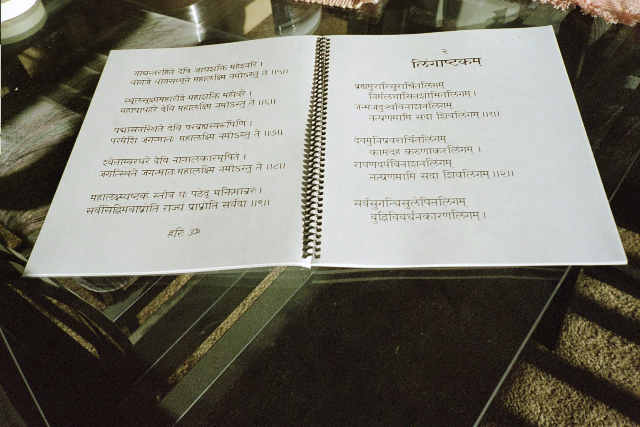 आद्यन्तरहिते देवि आद्यशक्ति महेश्वरि ।
योगजे योगसम्भूते महालक्ष्मि नमोऽस्तु ते ॥५॥
स्थूलसूक्ष्ममहारौद्रे महाशक्ति महोदरे ।
महापापहरे देवि महालक्ष्मि नमोऽस्तु ते ॥६॥
पद्मासनस्थिते देवि परब्रह्मस्वरूपिणि ।
परमेशि जगन्मातः महालक्ष्मि नमोऽस्तु ते ॥७॥
श्वेताम्बरधरे देवि नानालंकारभूषिते ।
जगत्स्थिते जगन्मातः महालक्ष्मि नमोऽस्तु ते ॥८॥
महालक्ष्म्यष्टकं स्तोत्रं यः पठेद् भक्तिमान्नरः ।
सर्वसिद्धिमवाप्नोति राज्यं प्राप्नोति सर्वदा ॥९॥
हरिः ॐ
२
लिंगाष्टकम्
ब्रह्ममुरारिसुरार्चितलिंगम्
निर्मलभासितशोभितलिंगम् ।
जन्मजदुःखविनाशनलिंगम्
तत्प्रणमामि सदा शिवलिंगम् ॥१॥
देवमुनिप्रवरार्चितलिंगम्
कामदहं करुणाकरलिंगम् ।
रावणदर्पविनाशनलिंगम्
तत्प्रणमामि सदा शिवलिंगम् ॥२॥
सर्वसुगन्धिसुलेपितलिंगम्
बुद्धिविवर्धनकारणलिंगम् ।